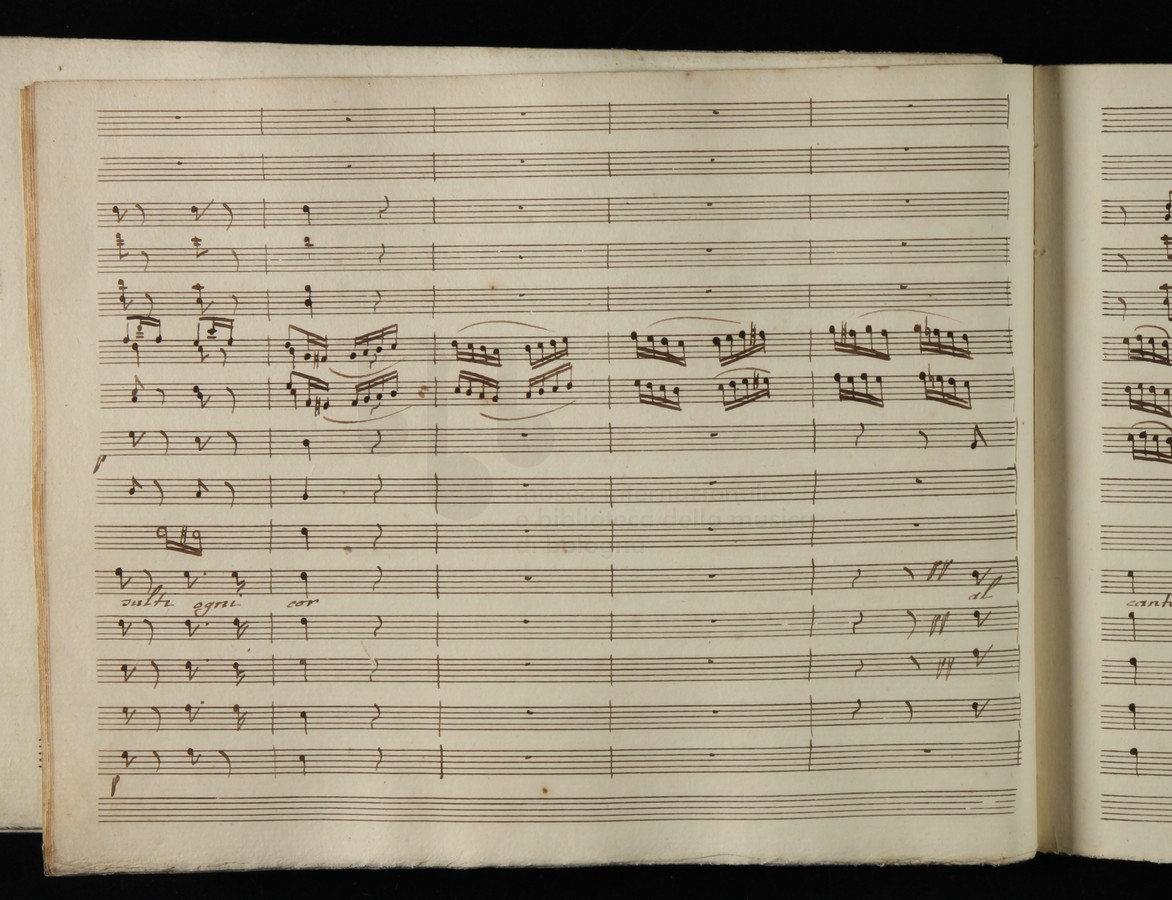 p
museo internazionale
e biblioteca della musica
di bologna
sulti ogni cor
al
p